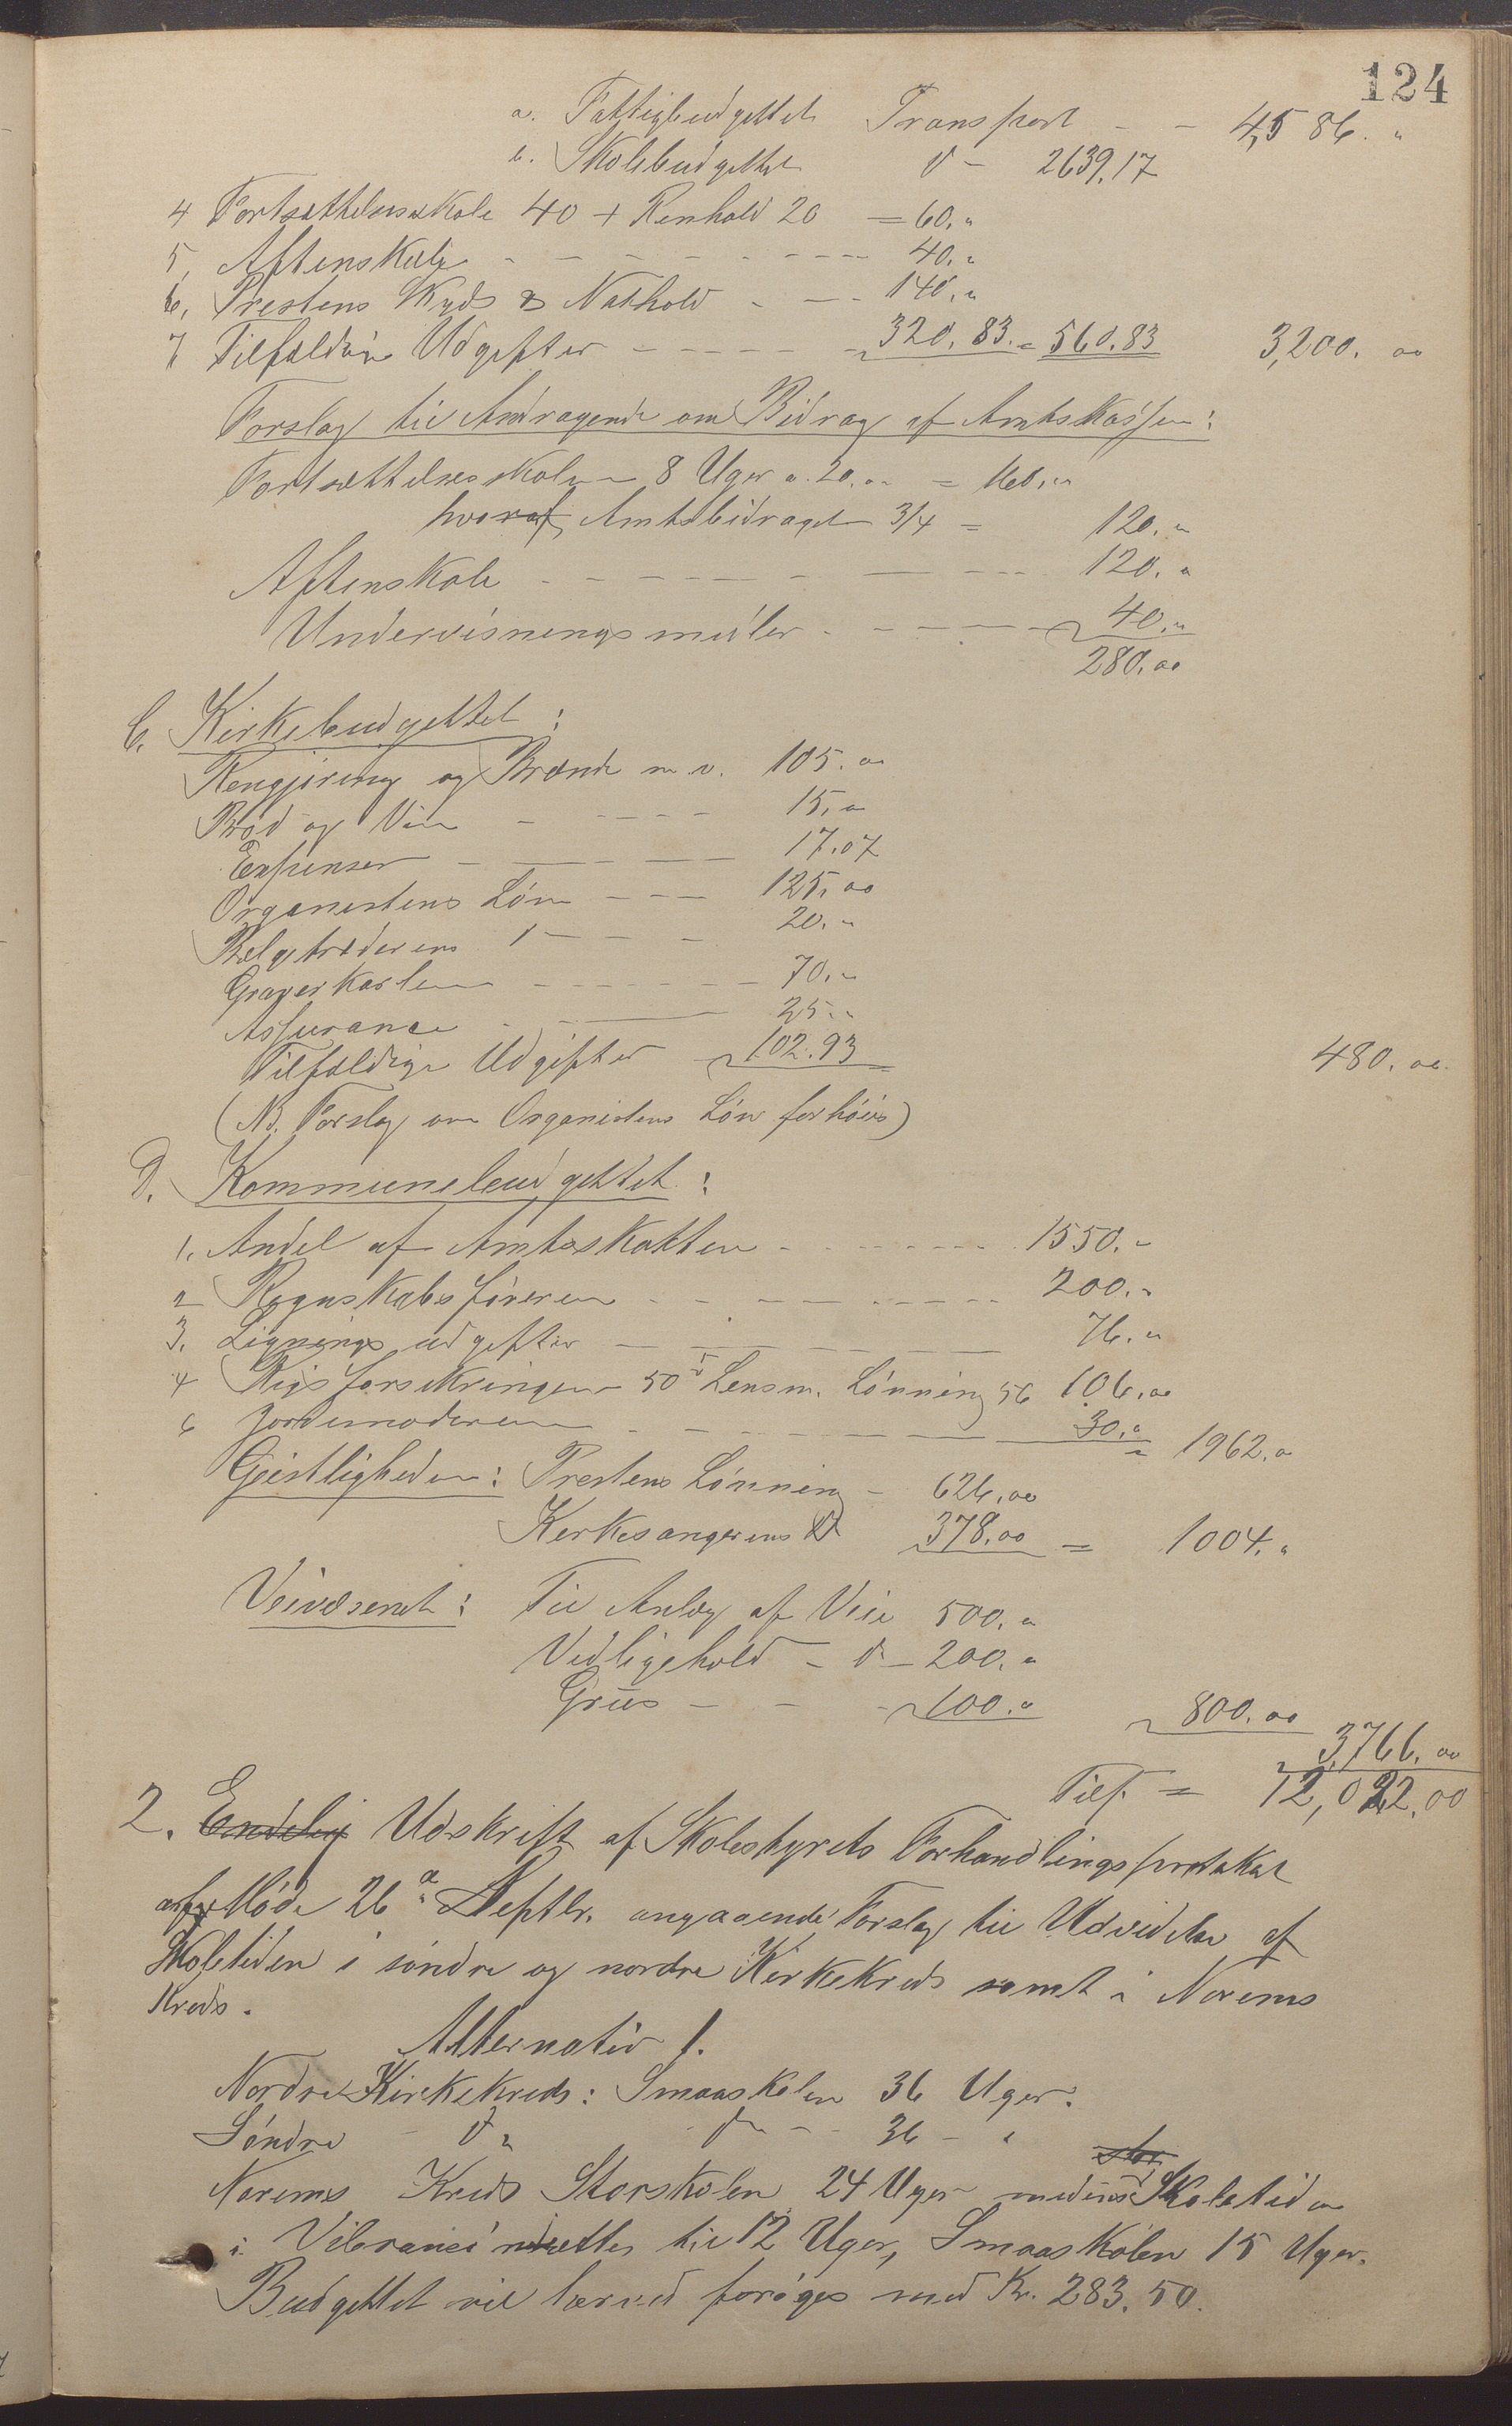 124
a. Fattigbudgettet Transport - - 4,586. "
b. Skolebudgettet d - 2639.17
4 Fortsættelsesskole 40 + Renhold 20 = 60. "
5, Aftenskole - - - - - - - 40. "
6, Prestens Skyds & Nathold - - - 140. "
7 Tilfældige Udgifter - - - - - 320.83. = 560.83 3,200. 00
Forslag til Andragende om Bidrag af Amtskassen:
Fortsættelsesskolen 8 Uger a. 20. 00 = 160. 00
hvoraf Amtsbidraget 3/4 = 120. "
Aftenskole - - - - - - - - 120. "
Undervisningsmidler - - - - - 40. "
280. 00
C. Kirkebudgettet:
Rengjøring og Brænde m. v. 105. 00
Brød og Vin - - - - - 15. 00
Expenser - - - - - 17.07
Organistens Løn - - - 125. 00
Belgetræderens d - - - 20. "
Graverkarlen - - - - - - 70. "
Assurance - - - 25. "
Tilfældige Udgifter 102.93 480. 00
(NB. Forslag om Organistens Løn forhøies)
D. Kommunebudgettet:
1. Andel af Amtsskatten - - - - - - 1550. "
2 Regnskabsføreren - - - - - - - 200. "
3. Ligningsudgifter - - - - - 76. "
4 Rigsforsikringen 50 5 Lensm. Lønning 56 106. 00
6 Jordemoderen - - - - - - 30. " = 1962. "
Geistligheden: Prestens Lønning - 626. 00
Kirkesangerens d 378. 00 = 1004. "
Veivæsenet: Til Anlæg af Veie 500. "
Vedligehold - d - 200. "
Gruus - - - 100. " 800. 00
3,766. 00
Tils. = 12,022.00
2. Endelig Udskrift af Skolestyrets Forhandlingsprotokol
af Møde 26de Septbr. angaaende Forslag til Udvidelse af
Skoletiden i søndre og nordre Kirkekreds samt i Norems
Kreds.
Alternativ 1.
Nordre Kirkekreds: Smaaskolen 36 Uger.
Søndre - d " - d - - 36 - "
stor
Norems Kreds Storskolen 24 Uger medens Skoletiden
i til 12 Uger, Smaaskolen 15 Uger.
Budgettet vil herved forøges med Kr. 283.50.